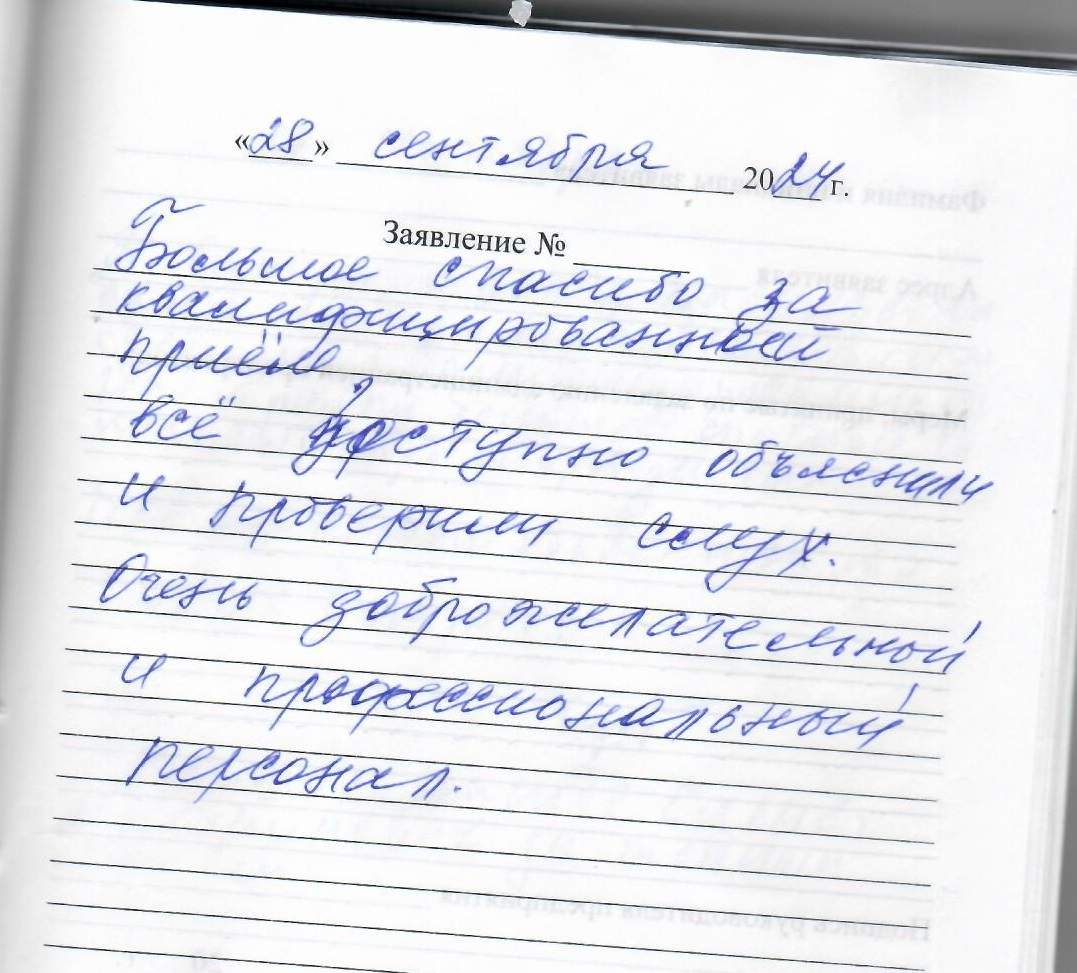 «28» сентября 2024 г.
Заявление №
Большое спасибо за
квалифицированный
приём,
всё доступно объяснили
и проверили слух.
Очень доброжелательный
и профессиональный
персонал.